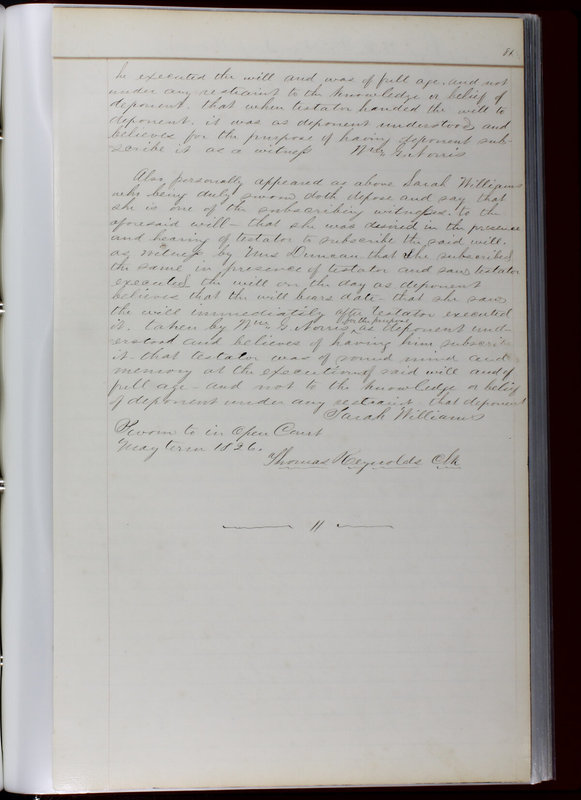 81
he executed the will and was of full age, and not
under any restraint to the knowledge or belief of
deponent. that when testator handed the will to
deponent. it was as deponent understood and
believes for the purpose of having deponent sub-
scribe it as a witness Wm G. Norris
Also personally appeared as above Sarah Williams
who being duly sworn doth depose and say that
she is one of the subscribing witnesses to the
aforesaid will - that she was desired in the presence
and hearing of testator to subscribe the said will.
as witness by Mrs Duncan that she subscribed
the same in presence of testator and saw testator
executed the will on the day as deponent
believes that the will bears date - that she saw
the will immediately after testator executed
it. taken by Wm G. Norris for the purpose as deponent und-
erstood and believes of having him subscribe
it - that testator was of sound mind and
memory at the execution of said will and of
full age - and not to the knowledge or belief
of deponent under any restraint. that deponent
Sarah Williams
Sworn to in Open Court
May term 1826.
Thomas Reynolds Clk
11